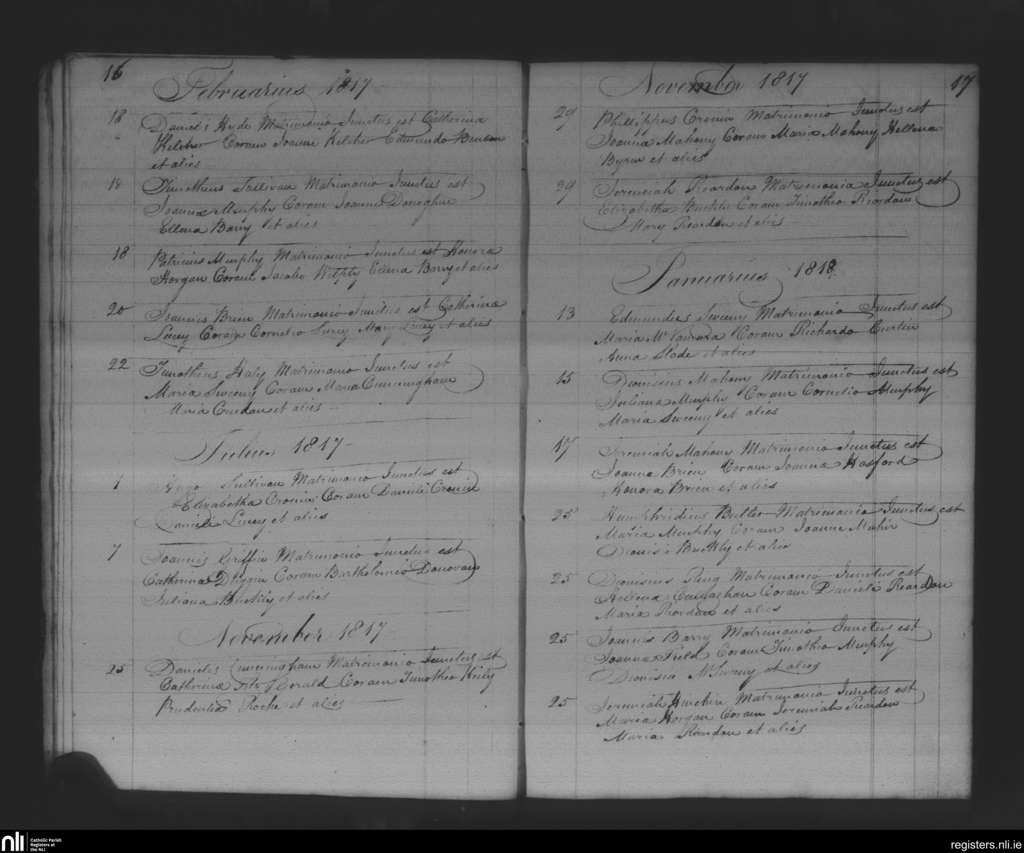 16
Februarius 1817
18 Daniels Hyde Matrimonio Junctus est Catherina
Kelcher Coram Joanne Kelcher Edmundo Benson
et aliis
18 Timotheus Sullivan Matrimonio Junctus est
Joanna Murphy Coram Joanne Donoghue
Ellena Barry et aliis
18 Patricius Murphy Matrimonio Junctus est Honora
Horgan Coram Jacobo Ellena Barry et aliis
20 Joannes Brien Matrimonio Junctus est Catherina
Lucey Coram Cornelio Lucey Mary Lucey et aliis
22 Timotheus Haly Matrimonio Junctus est
Maria Sweeny Coram Maria Cunningham
Maria Creedon et aliis
Julius 1817
1 Sullivan Matrimonio Junctus est
Elizabetha Cronin Coram Daniele Cronin
Daniele Lucey et aliis
7 Joannis Griffin Matrimonio Junctus est
Catherina Coram Bartholomio Donovan
Juliana Buckley et aliis
November 1817
25 Daniels Cunningham Matrimonio Junctus est
Catherina Fitz Gerald Coram Timotheo Kiely
Prudentia Roche et aliis
November 1817
17
29 Phillippus Cronin Matrimonio Junctus est
Joanna Mahony Coram Maria Mahony Hellena
Byrne et aliis
29 Jeremiah Reardon Matrimonia Junctus est
Elizabetha Buckley Coram Timotheo Riordane
Mary Reardon et aliis
Januarius 1818
13 Edmundus Sweeny Matrimonio Junctus est
Maria Coram Richardo Curtin
Anna Slode et aliis
15 Dionisius Mahony Matrimonio Junctus est
Juliana Murphy Coram Cornelio Murphy
Maria Sweeny et aliis
17 Jeremiah Mahony Matrimonio Junctus est
Joanna Brien Coram Joanna Hosford
Honora Brien et aliis
25 Humphridius Butler Matrimonio Junctus est
Maria Murphy Coram Joanne
Buckly et aliis
25 Dionisius Ring Matrimonio Junctus est
Hellena Callaghan Coram Daniele Reardon
Maria Riordan et aliis
25 Joannes Barry Matrimonio Junctus est
Joanna Field Coram Timotheo Murphy
Dionisia McSweny et alies
25 Jeremiah Matrimonio Junctus est
Maria Horgan Coram Jeremiah Reardon
Maria Reardon et aliis
nli
Catholic Parish
Registers at
the NLI
registers.nli.ie